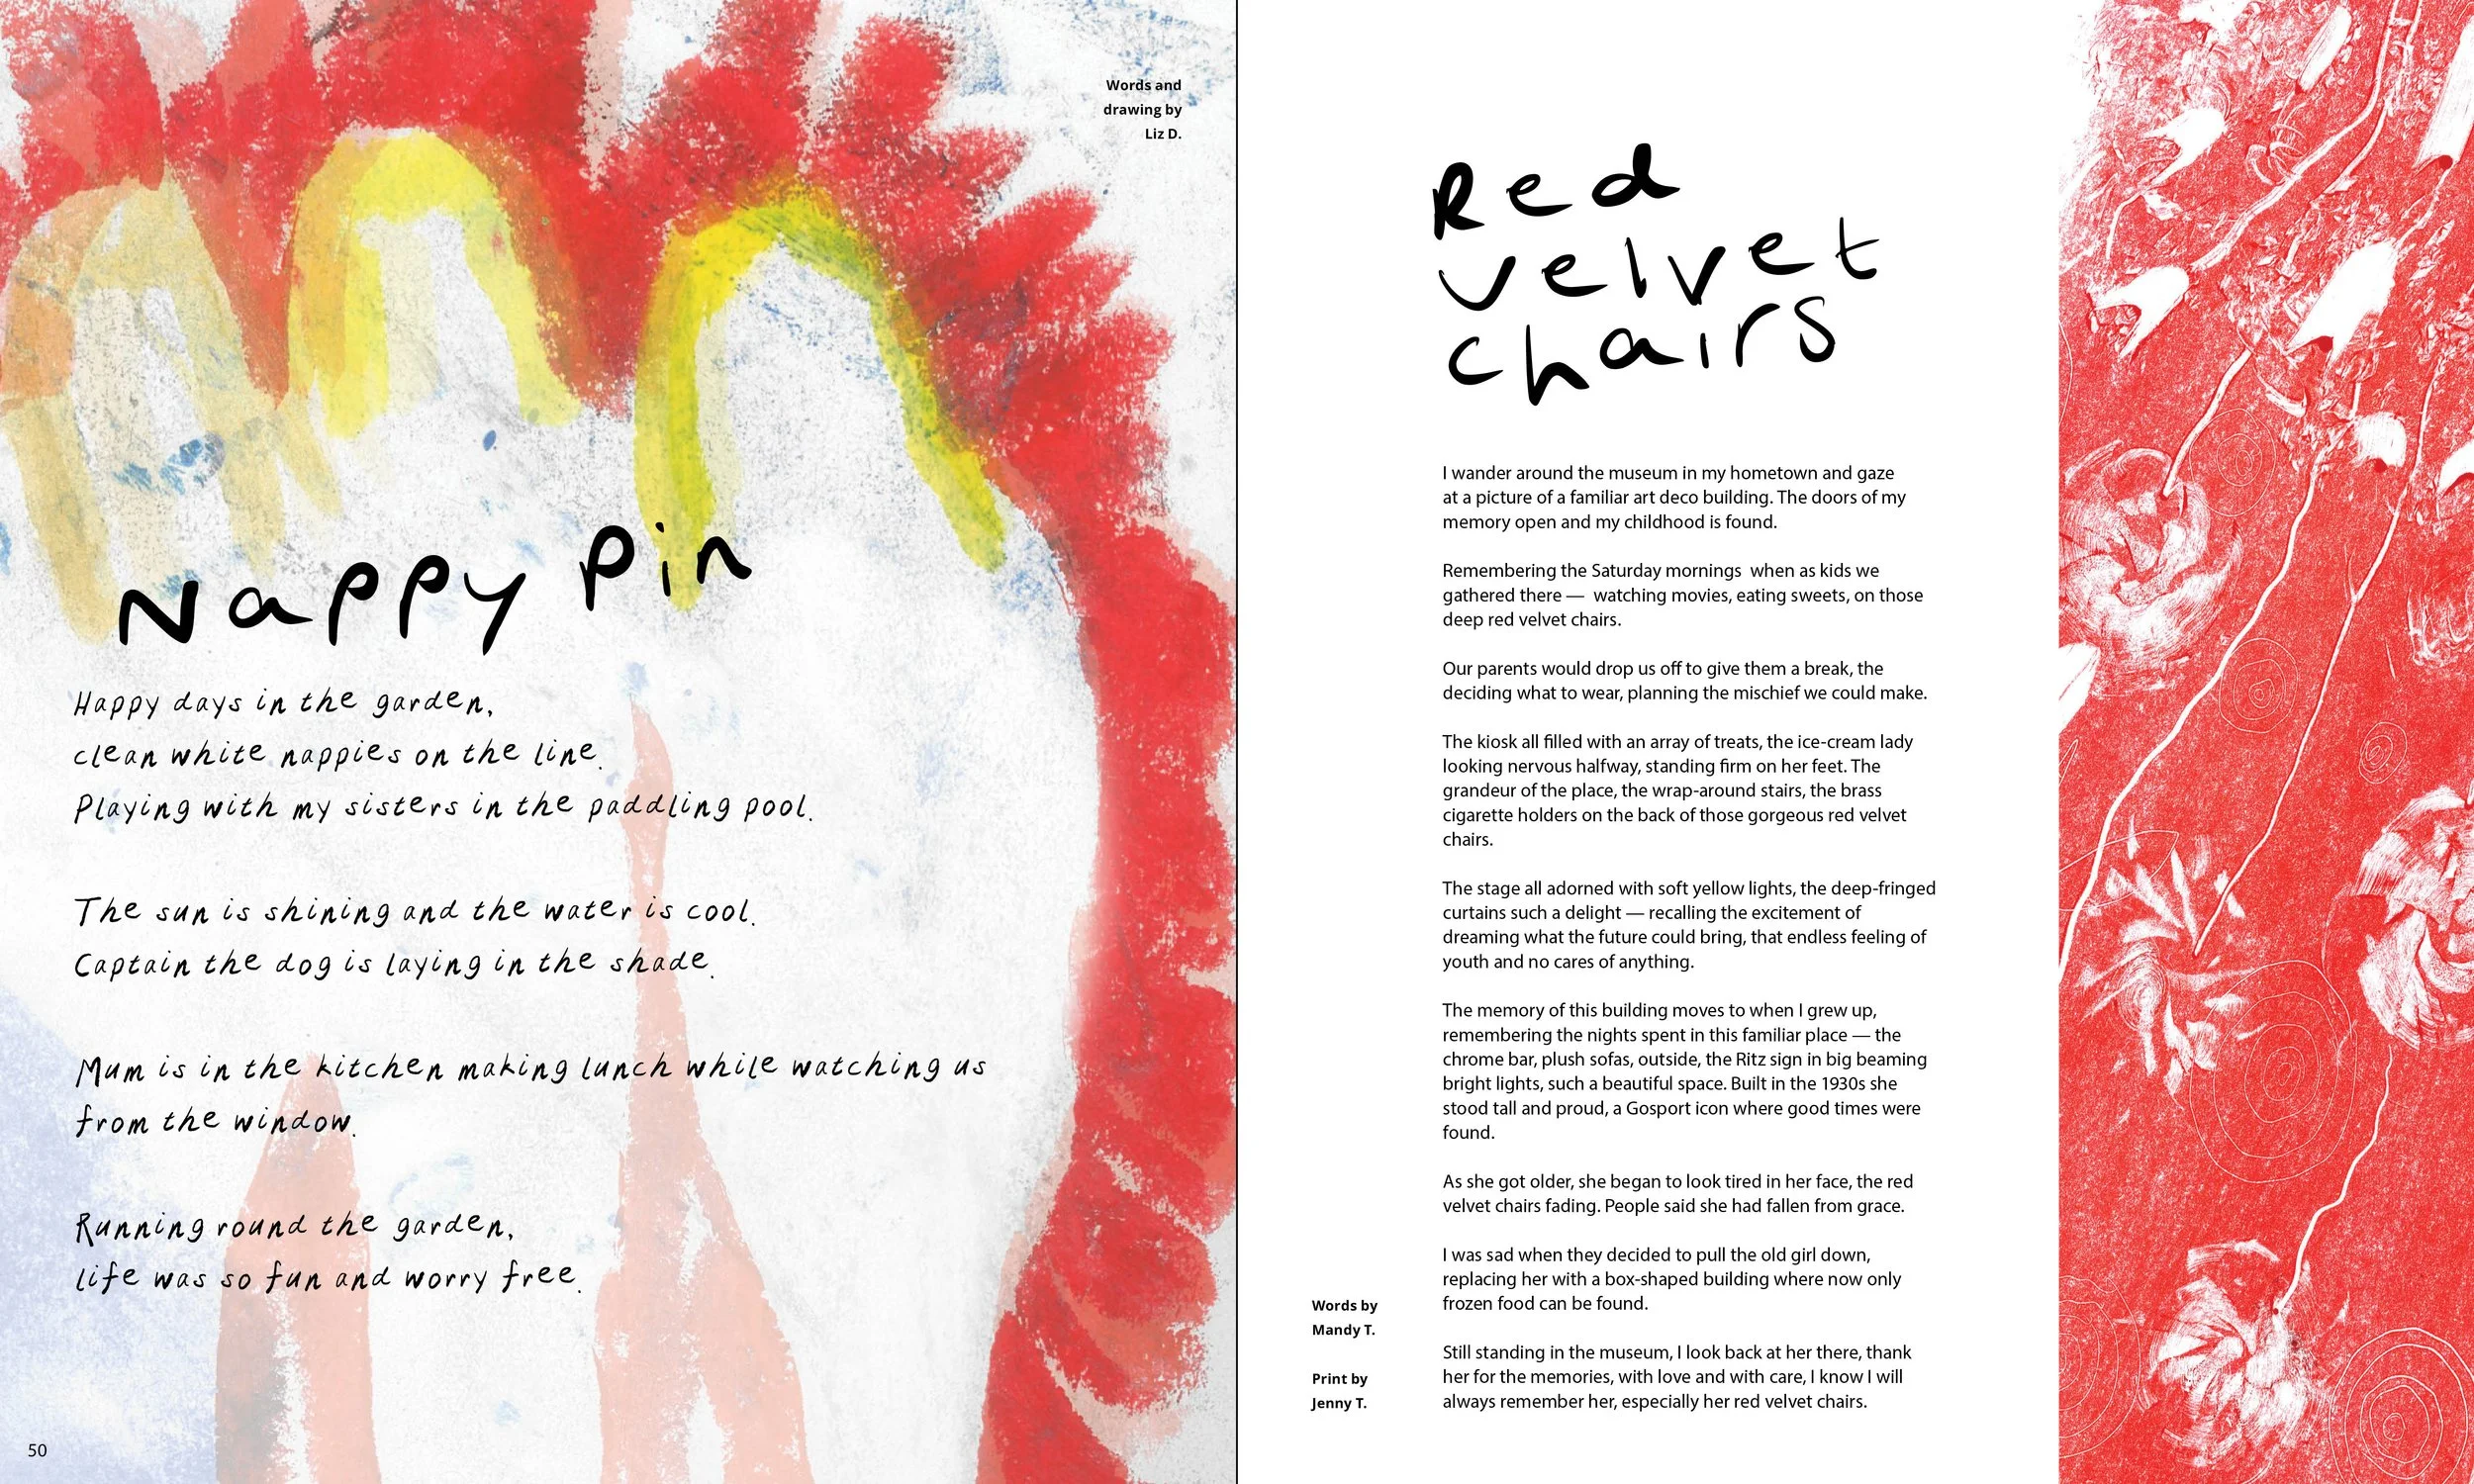 Words and
drawing by
Liz D.
Nappy Pin
Happy days in the garden,
clean white nappies on the line.
Playing with my sisters in the paddling pool.
The sun is shining and the water is cool.
Captain the dog is laying in the shade.
Mum is in the kitchen making lunch while watching us
from the window.
Running round the garden,
life was so fun and worry free.
50
Red
velvet
chairs
I wander around the museum in my hometown and gaze
at a picture of a familiar art deco building. The doors of my
memory open and my childhood is found.
Remembering the Saturday mornings  when as kids we
gathered there —  watching movies, eating sweets, on those
deep red velvet chairs.
Our parents would drop us off to give them a break, the
deciding what to wear, planning the mischief we could make.
The kiosk all filled with an array of treats, the ice-cream lady
looking nervous halfway, standing firm on her feet. The
grandeur of the place, the wrap-around stairs, the brass
cigarette holders on the back of those gorgeous red velvet
chairs.
The stage all adorned with soft yellow lights, the deep-fringed
curtains such a delight — recalling the excitement of
dreaming what the future could bring, that endless feeling of
youth and no cares of anything.
The memory of this building moves to when I grew up,
remembering the nights spent in this familiar place — the
chrome bar, plush sofas, outside, the Ritz sign in big beaming
bright lights, such a beautiful space. Built in the 1930s she
stood tall and proud, a Gosport icon where good times were
found.
As she got older, she began to look tired in her face, the red
velvet chairs fading. People said she had fallen from grace.
I was sad when they decided to pull the old girl down,
replacing her with a box-shaped building where now only
frozen food can be found.
Still standing in the museum, I look back at her there, thank
her for the memories, with love and with care, I know I will
always remember her, especially her red velvet chairs.
Words by
Mandy T.
Print by
Jenny T.